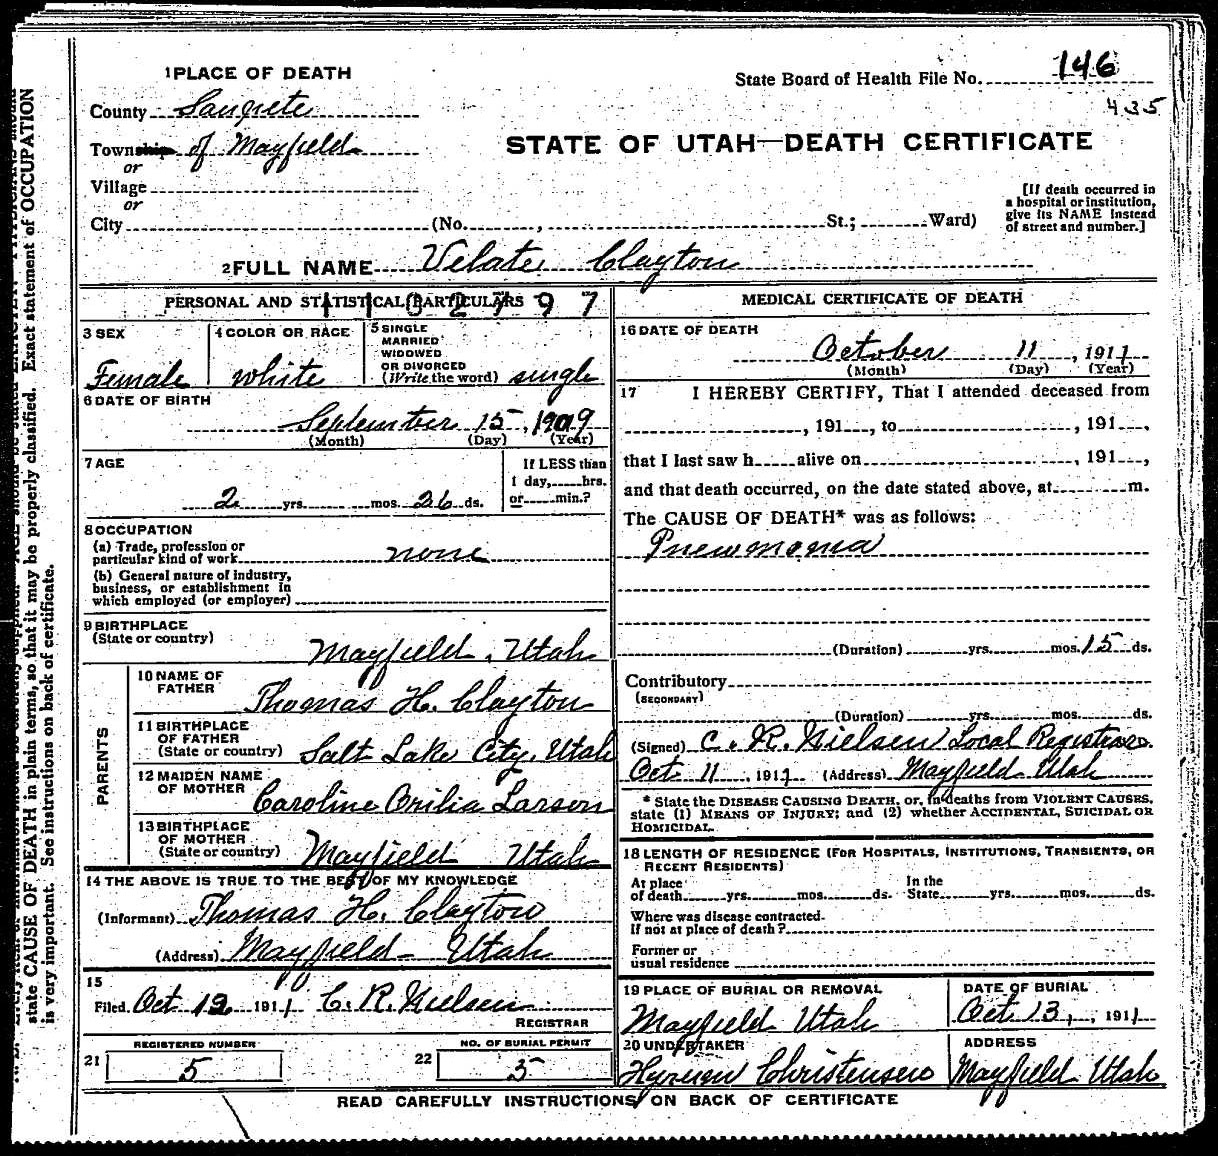 1 PLACE OF DEATH
State Board of Health File No. 146
435
County Sanpete
Township of Mayfield
or
Village
or
City (No. , St.; Ward)
STATE OF UTAH—DEATH CERTIFICATE
[If death occurred in
a hospital or institution,
give its NAME instead
of street and number.]
2 FULL NAME Velate Clayton
PERSONAL AND STATISTICAL PARTICULARS
3 SEX
Female
4 COLOR OR RACE
white
5 SINGLE
MARRIED
WIDOWED
OR DIVORCED
(Write the word) single
6 DATE OF BIRTH
September 15, 1909
(Month) (Day) (Year)
7 AGE
If LESS than
1 day, hrs.
or min.?
2 yrs. mos. 26 ds.
8 OCCUPATION
(a) Trade, profession or
particular kind of work none
(b) General nature of industry,
business, or establishment in
which employed (or employer)
9 BIRTHPLACE
(State or country)
Mayfield, Utah
PARENTS
10 NAME OF
FATHER
Thomas H. Clayton
11 BIRTHPLACE
OF FATHER
(State or country) Salt Lake City, Utah
12 MAIDEN NAME
OF MOTHER
Caroline Orilia Larson
13 BIRTHPLACE
OF MOTHER
(State or country) Mayfield Utah
14 THE ABOVE IS TRUE TO THE BEST OF MY KNOWLEDGE
(Informant) Thomas H. Clayton
(Address) Mayfield - Utah
15
Filed Oct 12 1911 C. R. Nielsen
REGISTRAR
21
REGISTERED NUMBER
5
22
NO. OF BURIAL PERMIT
5
MEDICAL CERTIFICATE OF DEATH
16 DATE OF DEATH
October 11, 1911
(Month) (Day) (Year)
17 I HEREBY CERTIFY, That I attended deceased from
, 191 , to , 191 ,
that I last saw h alive on , 191 ,
and that death occurred, on the date stated above, at m.
The CAUSE OF DEATH* was as follows:
Pneumonia
(Duration) yrs. mos. 15 ds.
Contributory
(SECONDARY)
(Duration) yrs. mos. ds.
(Signed) C. R. Nielsen Local Registrar
Oct 11, 1911 (Address) Mayfield Utah
* State the DISEASE CAUSING DEATH, or, in deaths from VIOLENT CAUSES,
state (1) MEANS OF INJURY; and (2) whether ACCIDENTAL, SUICIDAL OR
HOMICIDAL.
18 LENGTH OF RESIDENCE (FOR HOSPITALS, INSTITUTIONS, TRANSIENTS, OR
RECENT RESIDENTS)
At place
of death yrs. mos. ds.
In the
State yrs. mos. ds.
Where was disease contracted.
If not at place of death?
Former or
usual residence
19 PLACE OF BURIAL OR REMOVAL
Mayfield Utah
DATE OF BURIAL
Oct. 13, 1911
20 UNDERTAKER
Hyrum Christensen
ADDRESS
Mayfield Utah
READ CAREFULLY INSTRUCTIONS ON BACK OF CERTIFICATE
state CAUSE OF DEATH in plain terms, so that it may be properly classified. Exact statement of OCCUPATION
is very important. See instructions on back of certificate.